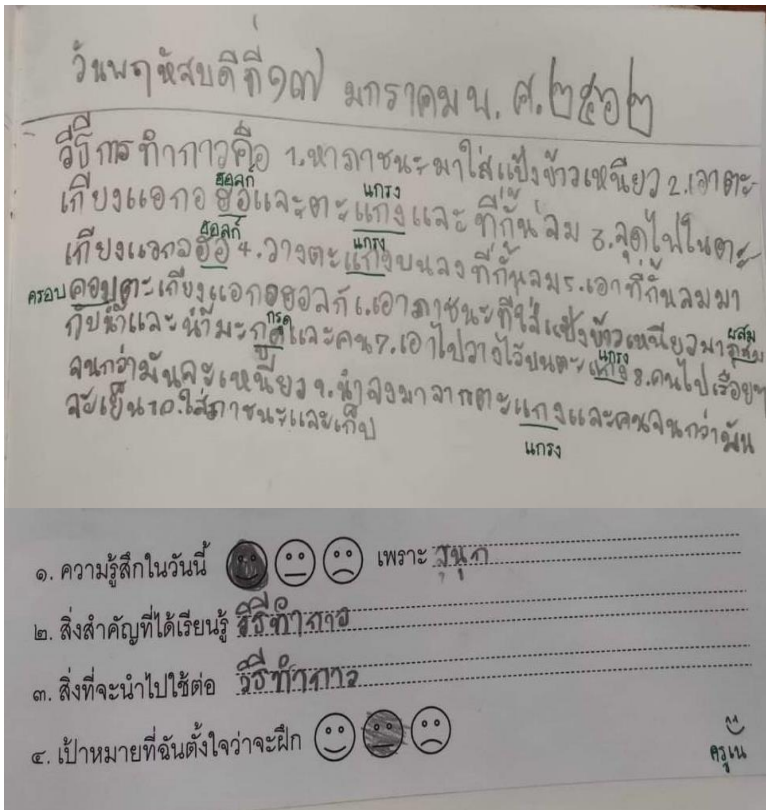 วันพฤหัสบดีที่๑๗ มกราคม พ.ศ.๒๕๖๒
วีธีการทำกาวคือ 1.หาภาชนะมาใส่แป้งข้าวเหนียว 2.เอาตะ
ฮอลก์ แกรง
เกียงแอกอฮอและตะแกงและที่กั้นลม 3.จุดไฟในตะ
ฮอลก์ แกรง
เกียงแอกอฮอ 4.วางตะแกงบนลงที่กั้นลม 5.เอาที่กั้นลมมา
ครอบ คอบตะเกียงแอกอฮอลก์ 6.เอาภาชนะที่ใส่แป้งข้าวเหนียวมาผสม ผสม
กับน้ำและน้ำมะกูดและคน 7.เอาไปวางไว้บนตะแกง 8.คนไปเรื่อยๆ
กรูด แกรง
จนกว่ามันจะเหนียว 9.นำลงมาจากตะแกงและคนจนกว่ามัน
จะเย็น 10.ใส่ภาชนะและเก็บ
แกรง
๑. ความรู้สึกในวันนี้ เพราะ
๒. สิ่งสำคัญที่ได้เรียนรู้ วีธีทำกาว
๓. สิ่งที่จะนำไปใช้ต่อ วีธีทำกาว
๔. เป้าหมายที่ฉันตั้งใจว่าจะฝึก
ครูเน